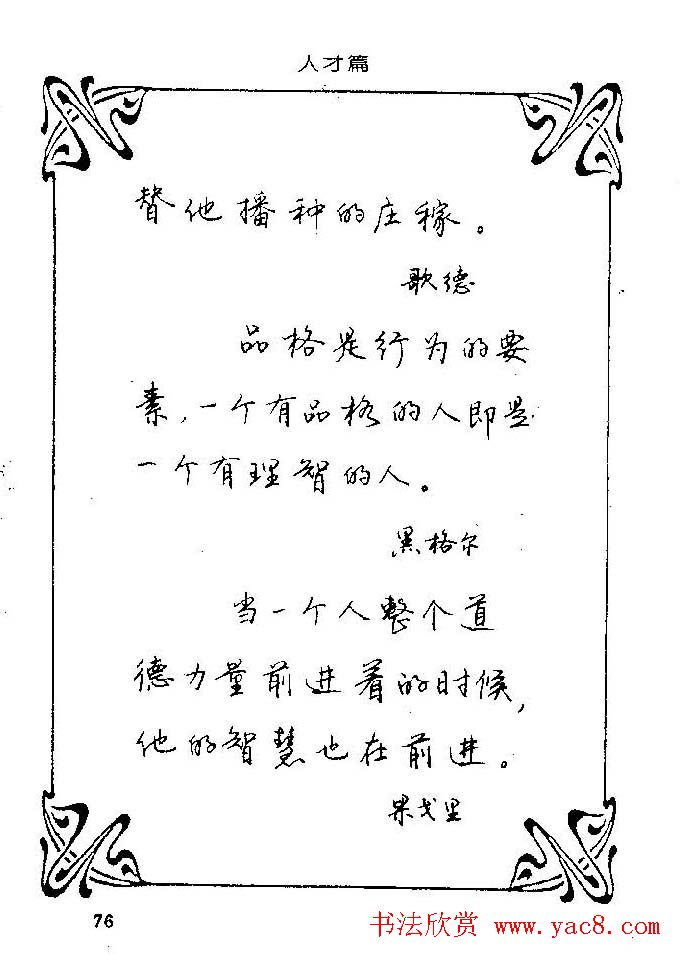 人才篇
替他播种的庄稼。
歌德
品格是行为的要
素，一个有品格的人即是
一个有理智的人。
黑格尔
当一个人整个道
德力量前进着的时候，
他的智慧也在前进。
果戈里
76
书法欣赏 www.yac8.com